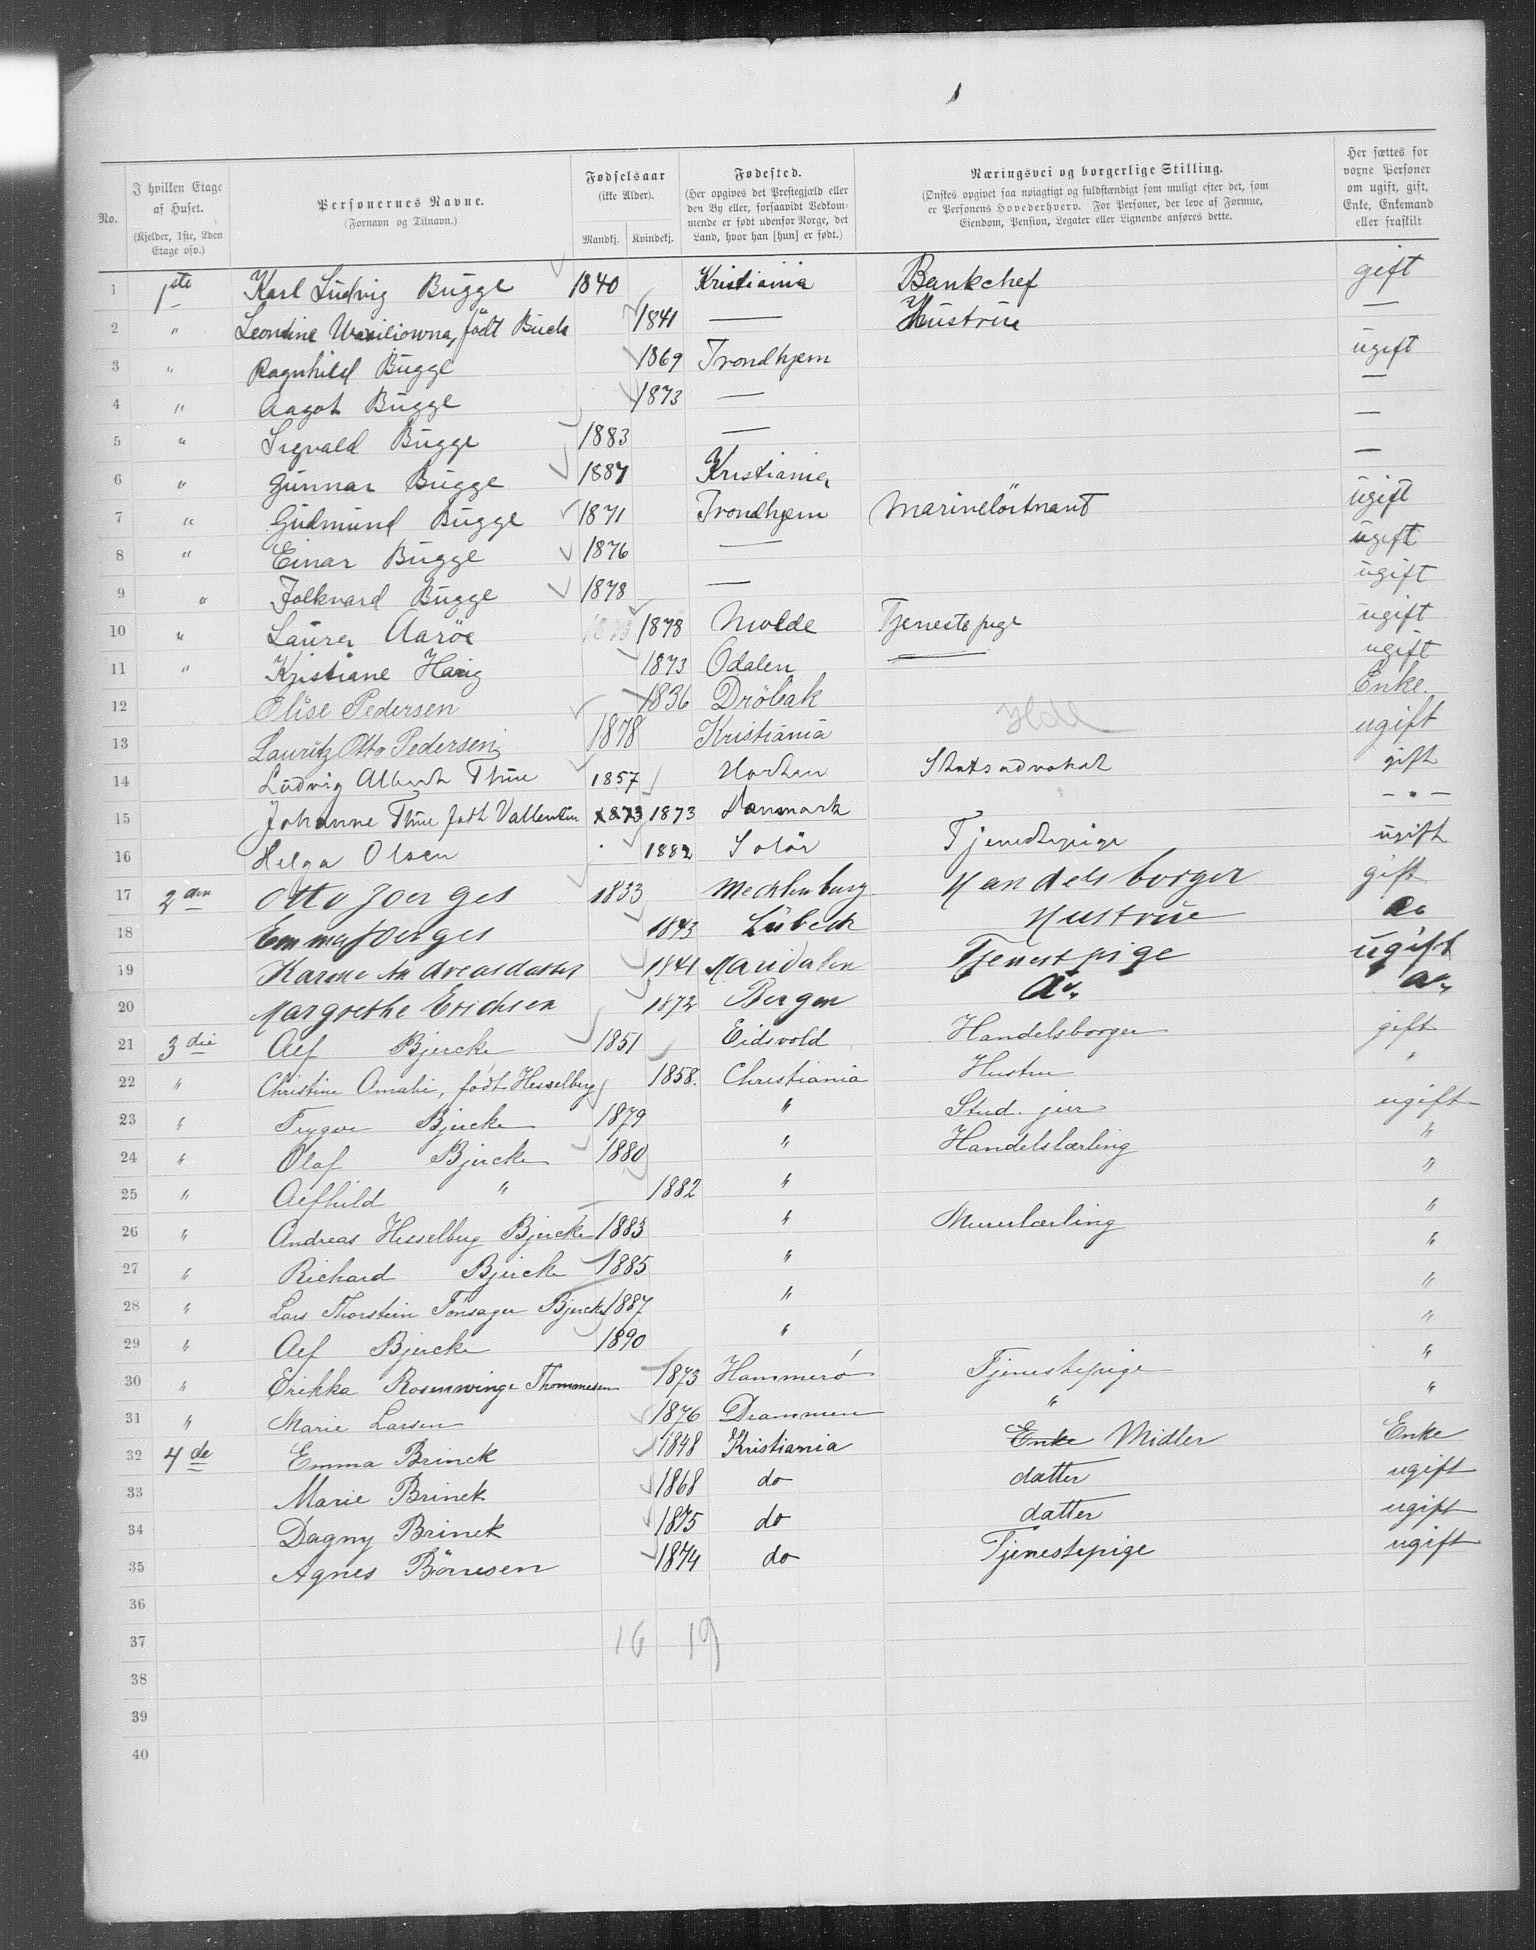 1
No.
I hvilken Etage af Huset.
(Kjelder, 1ste, 2den Etage osv.)
Personernes Navne.
(Fornavn og Tilnavn.)
Fødselsaar
(ikke Alder).
Mandkj. Kvindekj.
Fødested.
(Her opgives det Prestegjæld eller den By eller, forsaavidt Vedkommende er født udenfor Norge, det Land, hvor han [hun] er født.)
Næringsvei og borgerlige Stilling.
(Ønskes opgivet saa nøiagtigt og fuldstændigt som muligt efter det, som er Personens Hovederhverv. For Personer, der leve af Formue, Eiendom, Pension, Legater eller Lignende anføres dette.
Her sættes for voxne Personer om ugift, gift, Enke, Enkemand eller fraskilt
1 1ste Karl Ludvig Bugge 1840 Kristiania Bankchef gift
2 " Leontine Wasiliowna, født Buck 1841 — Hustrue —
3 " Ragnhild Bugge 1869 Trondhjem ugift
4 " Aagot Bugge 1873 — —
5 " Sigvald Bugge 1883 — —
6 " Gunnar Bugge 1887 Kristiania —
7 " Gudmund Bugge 1871 Trondhjem Marineløitnant ugift
8 " Einar Bugge 1876 — ugift
9 " Folkvard Bugge 1878 — ugift
10 " Laura Aarøe 1878 Molde Tjenestepige ugift
11 " Kristiane Haug 1873 Odalen — ugift
12 Elise Pedersen 1836 Drøbak Enke.
13 Lauritz Otto Pedersen 1878 Kristiania ugift
14 Ludvig Albert Thue 1857 Horten Statsadvokat gift
15 Johanne Thue født Vallentin 1873 1873 Danmark - " -
16 Helga Olsen 1882 Solør Tjenestepige ugift
17 2den Otto Joerges 1833 Mecklenburg Handelsborger gift
18 Emma Joerges 1843 Lübeck Hustrue do
19 Karine Andreasdatter 1841 Maridalen Tjenestpige ugift
20 Margrethe Erichsen 1872 Bergen do do
21 3die Alf Bjercke 1851 Eidsvold Handelsborger gift
22 " Christine Amalie, født Hesselberg 1858. Christiania Hustru "
23 " Trygve Bjercke 1879 " Stud. jur ugift
24 " Olaf Bjercke 1880 " Handelslærling "
25 " Alfhild " 1882 " "
26 " Andreas Hesselberg Bjercke 1883 " Murerlærling "
27 " Richard Bjercke 1885 " "
28 " Lars Thorstein Tonsager Bjercke 1887 " "
29 " Alf Bjercke 1890 " "
30 " Erikka Rosenvinge Thommesen 1873 Hammerø Tjenestepige "
31 " Marie Larsen 1876 Drammen " "
32 4de Emma Brinck 1848 Kristiania Enke Midler Enke
33 Marie Brinck 1868 do datter ugift
34 Dagny Brinck 1875 do datter ugift
35 Agnes Börresen 1874 do Tjenestepige ugift
36
37 16 19
38
39
40